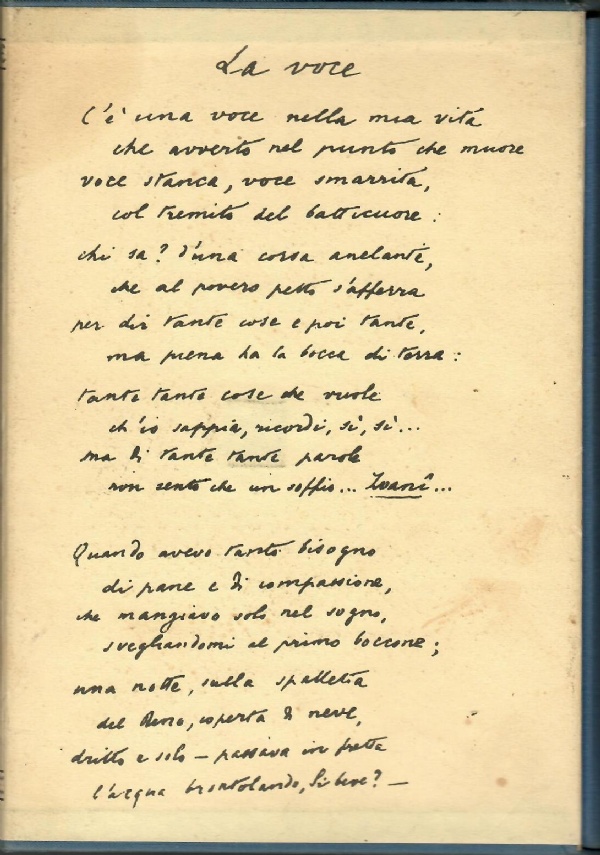 La voce
C'è una voce nella mia vita
che avverto nel punto che muore
voce stanca, voce smarrita,
col tremito del batticuore:
chi sa? d'una corsa anelante,
che al povero petto s'afferra
per dir tante cose e poi tante,
ma piena ha la bocca di terra:
tante tante cose che vuole
ch'io sappia, ricordi, sì, sì...
ma di tante tante parole
non sento che un soffio... Zvanî...
Quando avevo tanto bisogno
di pane e di compassione,
che mangiavo solo nel sogno,
svegliandomi al primo boccone;
una notte, sulla spalletta
del Reno, coperta di neve,
dritto e solo — passava in fretta
l'acqua brontolando, Si beve? —